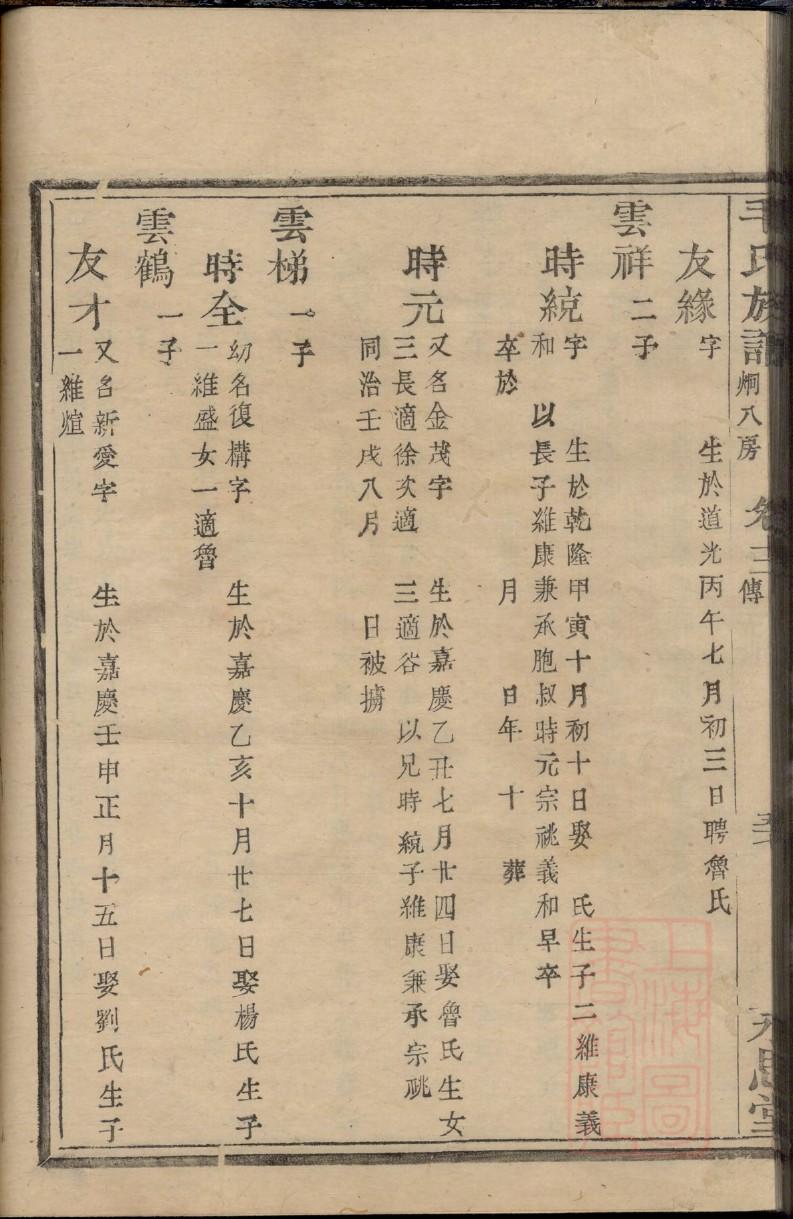 毛氏族譜 炯八房 卷三 傳 永思堂
友緣 字 生於道光丙午七月初三日聘魯氏
雲祥 二子
時統 字 生於乾隆甲寅十月初十日娶 氏生子二維康義
和 以長子維康兼承胞叔時元宗祧義和早卒
卒於 月 日年 十 葬
時元 又名金茂字 生於嘉慶乙丑七月廿四日娶魯氏生女
三長適徐次適 三適谷 以兄時統子維康兼承宗祧
同治壬戌八月 日被擄
雲梯 一子
時全 幼名復構字 生於嘉慶乙亥十月廿七日娶楊氏生子
一維盛女一適魯
雲鶴 一子
友才 又名新愛字 生於嘉慶壬申正月十五日娶劉氏生子
一維煊
上海圖書館藏